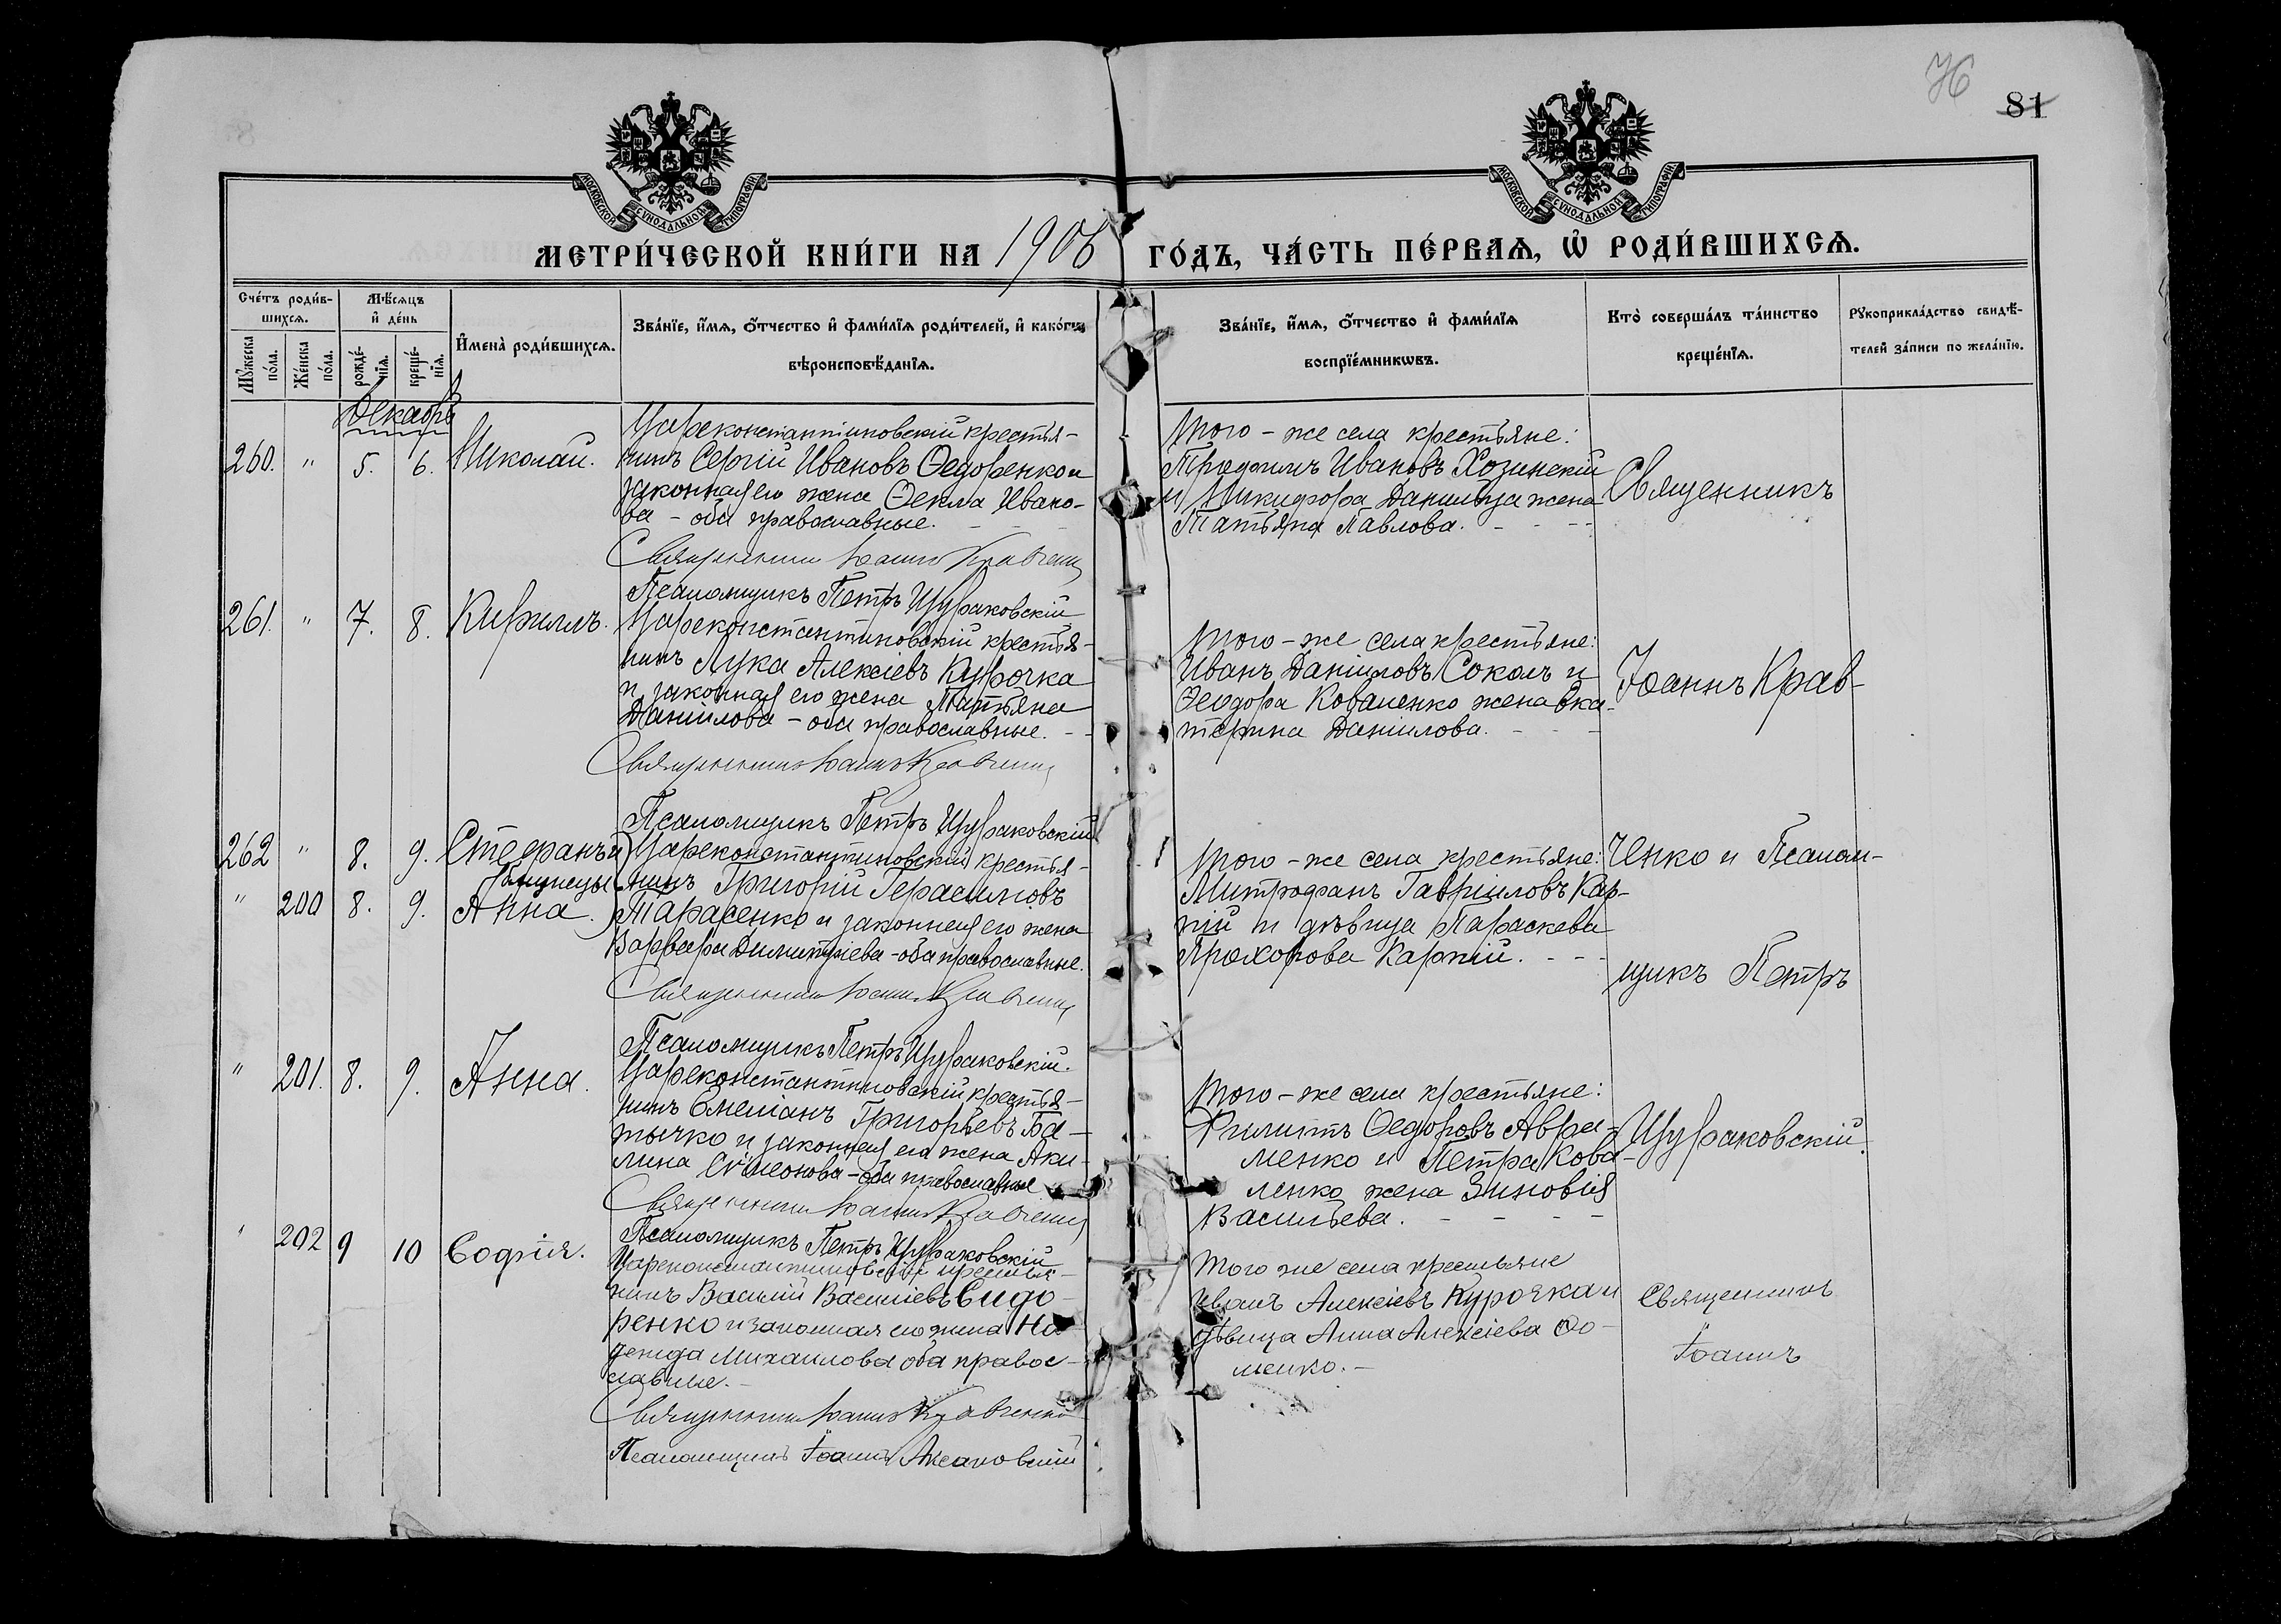 76
81
МОСКОВСКОЙ СУНОДАЛЬНОЙ ТИПОГРАФІИ.
МОСКОВСКОЙ СУНОДАЛЬНОЙ ТИПОГРАФІИ.
МЕТРИ́ЧЕСКОЙ КНИ́ГИ НА 1906 ГО́ДЪ, ЧА́СТЬ ПЕ́РВАѦ, Ѽ РОДИ́ВШИХСѦ.
Сче́тъ роди́в-
шихсѧ.
Мѣ́сѧцъ
и҆ де́нь
Мꙋ́жеска по́ла.
Же́нска по́ла.
рожде́-
нїѧ.
креще́-
нїѧ.
И҆мена̀ роди́вшихсѧ.
Зва́нїе, и҆́мѧ, ѻ҆́тчество и҆ фами́лїѧ роди́телей, и҆ како́гѡ
вѣроисповѣ́данїѧ.
Зва́нїе, и҆́мѧ, ѻ҆́тчество и҆ фами́лїѧ
воспрїе́мникѡвъ.
Кто̀ соверша́лъ та́инство
креще́нїѧ.
Рꙋкоприкла́дство свидѣ́-
телей за́писи по жела́нїю.
Декабрь
260. " 5. 6. Николай.
Цареконстантиновскій крестья-
нинъ Сергій Ивановъ Ѳедоренко и
законная его жена Ѳекла Ивано-
ва - оба православные.
Священникъ Іоаннъ Кравченко
Псаломщикъ Петръ Щураковскій
Того-же села крестьяне:
Трофимъ Ивановъ Хозинскій
и Никифора Данильца жена
Татьяна Павлова.
Священникъ
261. " 7. 8. Кириллъ.
Цареконстантиновскій крестья-
нинъ Лука Алексіевъ Курочка
и законная его жена Татьяна
Даніилова - оба православные.
Священникъ Іоаннъ Кравченко
Псаломщикъ Петръ Щураковскій
Того-же села крестьяне:
Иванъ Даніиловъ Соколъ и
Ѳеодора Коваленко жена Ека-
терина Даніилова.
Іоаннъ Крав-
262 " 8. 9. Стефанъ и
близнецы
" 200 8. 9. Анна.
Цареконстантиновскій крестья-
нинъ Григорій Герасимовъ
Тарасенко и законная его жена
Варвара Димитріева - оба православные.
Священникъ Іоаннъ Кравченко
Псаломщикъ Петръ Щураковскій.
Того-же села крестьяне:
Митрофанъ Гавріиловъ Кар-
пій и дѣвица Параскева
Прохорова Карпій.
ченко и Псалом-
щикъ Петръ
" 201. 8. 9. Анна.
Цареконстантиновскій крестья-
нинъ Емеліанъ Григорьевъ Ба-
тычко и законная его жена Аки-
лина Сѵмеонова - оба православные
Священникъ Іоаннъ Кравченко
Псаломщикъ Петръ Щураковскій
Того-же села крестьяне:
Филиппъ Ѳедоровъ Авра-
менко и Петра Кова-
ленко жена Зиновія
Васильева.
Щураковскій.
" 202 9 10 Софія.
Цареконстантиновскій крестья-
нинъ Василій Васильевъ Сидо-
ренко и законная его жена На-
дежда Михаилова оба правос-
лавные.
Священникъ Іоаннъ Кравченко
Псаломщикъ Іоаннъ
Того же села крестьяне
Иванъ Алексіевъ Курочка и
дѣвица Анна Алексіева Ѳо-
менко.
Священникъ
Іоаннъ